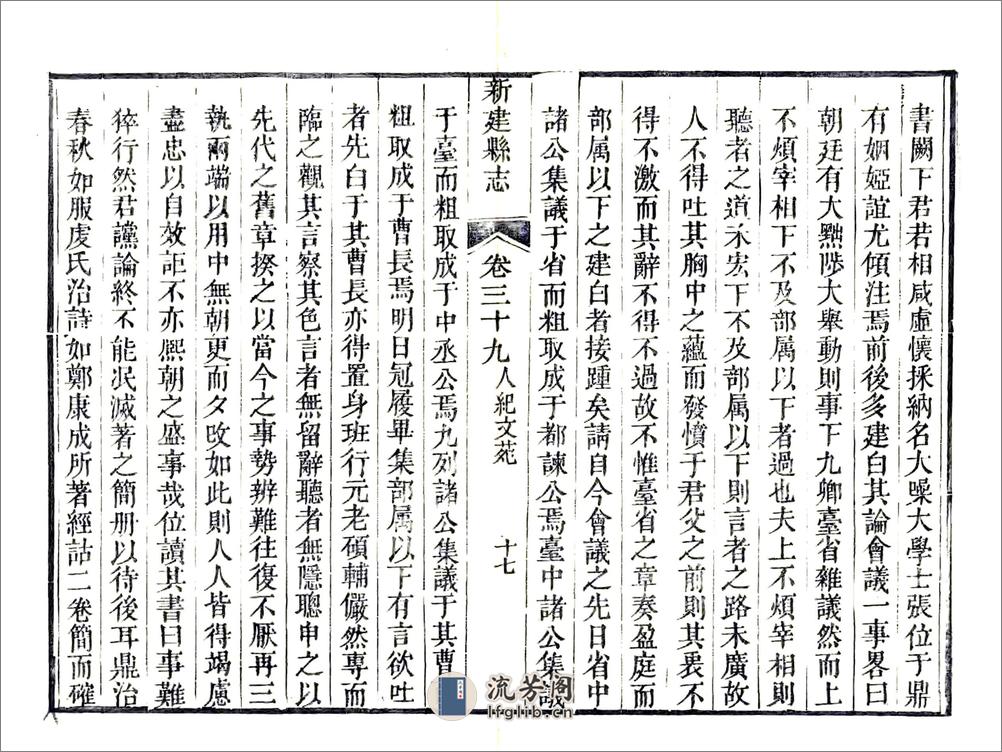 書闕下君若相咸虛懷採納名大噪大學士張位于鼎
有姻婭誼尤傾注焉前後多建白其論會議一事畧曰
朝廷有大黜陟大舉動則事下九卿臺省雜議然而上
不煩宰相下不及部属以下者過也夫上不煩宰相則
聽者之道未宏下不及部属以下則言者之路未廣故
人不得吐其胸中之蘊而發憤于君父之前則其裏不
得不激而其辭不得不過故不惟臺省之章奏盈庭而
部属以下之建白者接踵矣請自今會議之先日省中
諸公集議于省而粗取成于都諫公焉臺中諸公集議
新建縣志
卷三十九
人紀文苑
十七
于臺而粗取成于中丞公焉九列諸公集議于其曹
粗取成于曹長焉明日冠履畢集部属以下有言欲吐
者先白于其曹長亦得置身班行元老碩輔儼然專而
臨之觀其言察其色言者無留辭聽者無隱聰申之以
先代之舊章揆之以當今之事勢辨難往復不厭再三
執兩端以用中無朝更而夕改如此則人人皆得竭慮
盡忠以自效詎不亦熙朝之盛事哉位讀其書曰事難
猝行然君讜論終不能泯滅著之簡册以待後耳鼎治
春秋如服虔氏治詩如鄭康成所著經詁二卷簡而確
流芳閣
lfglib.cn